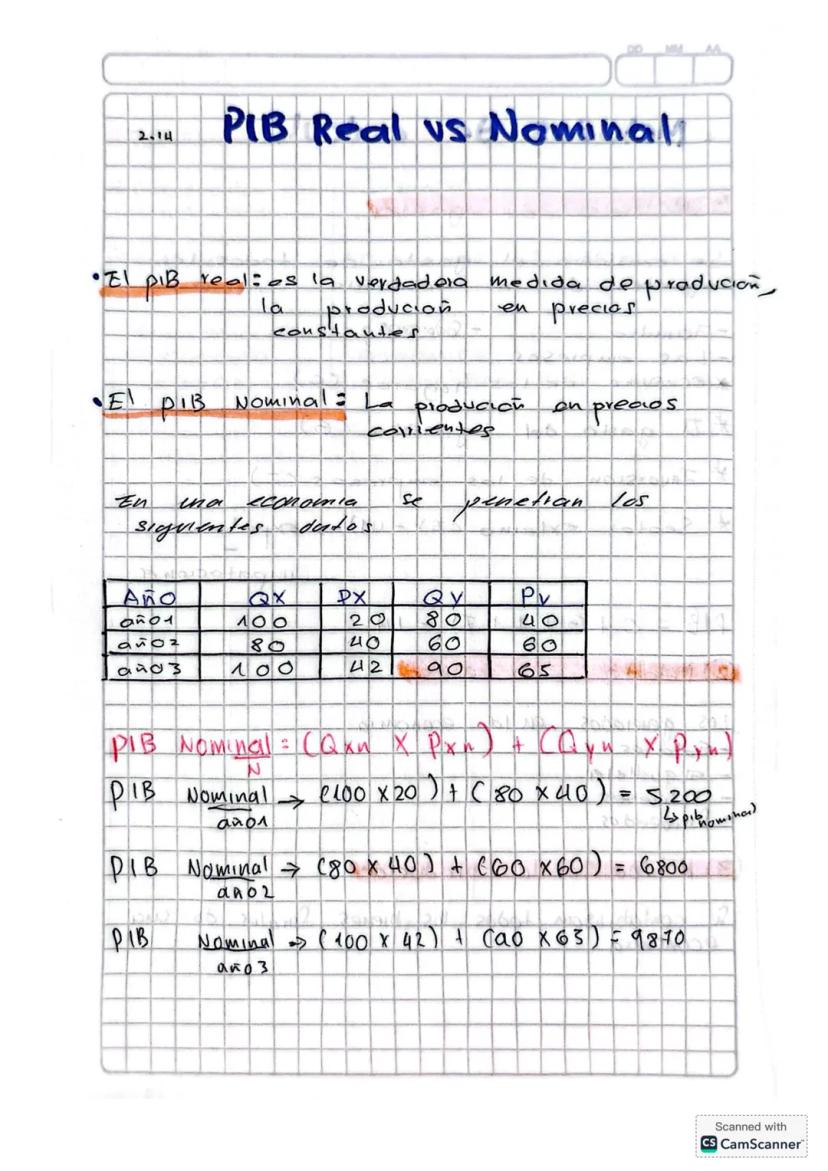 DD MM AA
2.14 PIB Real vs Nominal
• El PIB real: es la verdadera medida de produción,
la produción en precios
constantes
• El PIB Nominal: La produción en precios
corrientes
En una economia se penetran los
siguientes datos
Año QX PX QY PY
año1 100 20 80 40
año2 80 40 60 60
año3 100 42 90 65
PIB Nominal = (Qxn X Pxn) + (Qyn X Pyn)
N
PIB Nominal → (100 X 20) + (80 X 40) = 5200
año1 ↳ pib nominal
PIB Nominal → (80 X 40) + (60 X 60) = 6800
año2
PIB Nominal → (100 X 42) + (90 X 63) = 9870
año3
Scanned with
CS CamScanner